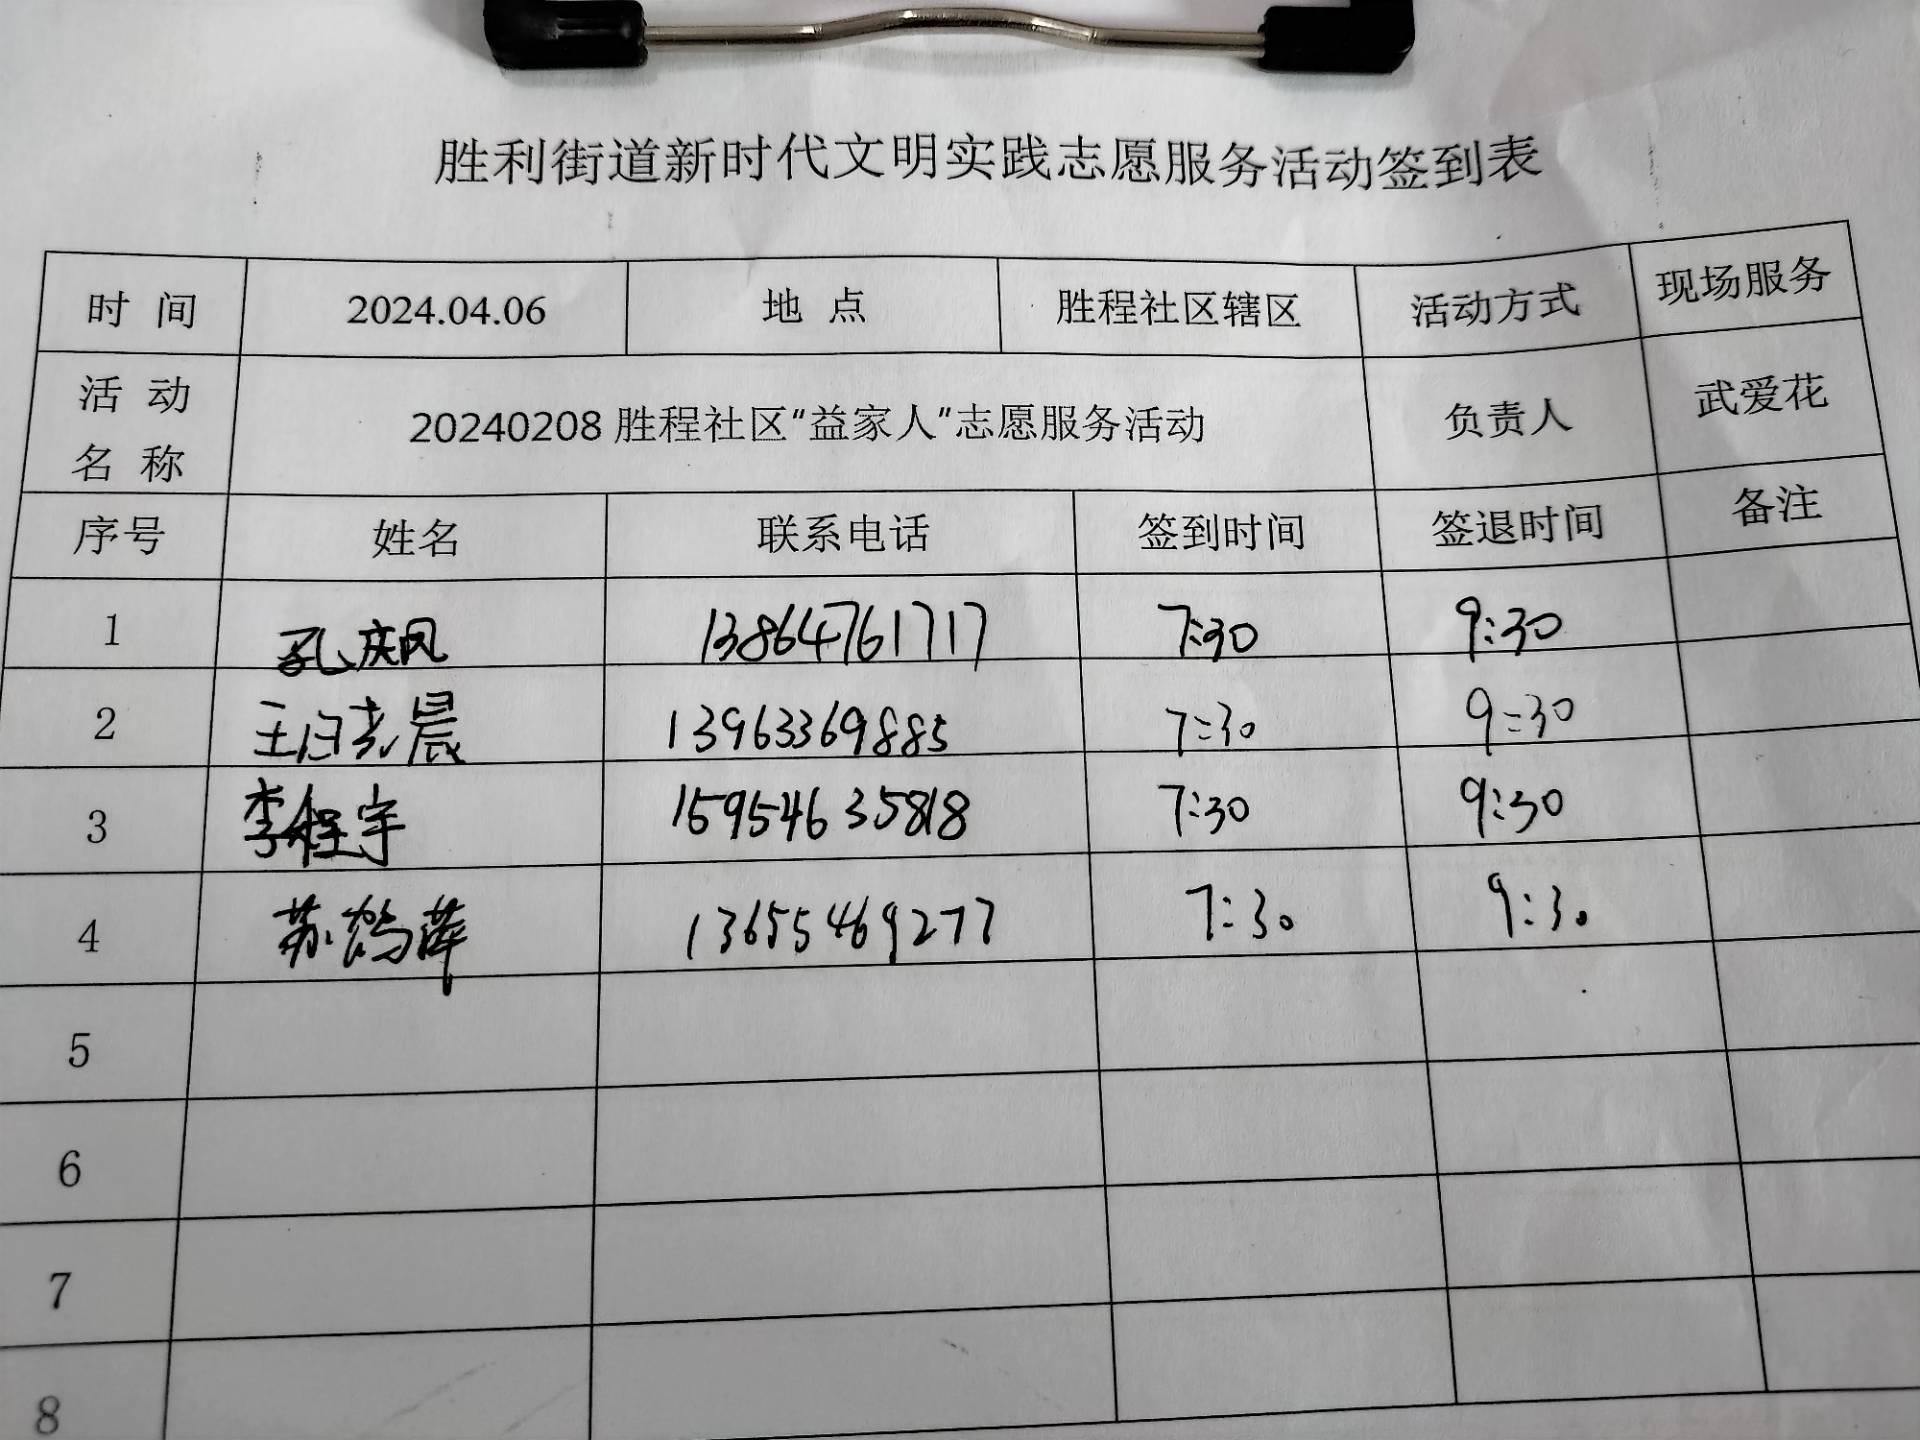 胜利街道新时代文明实践志愿服务活动签到表
时 间 2024.04.06 地 点 胜程社区辖区 活动方式 现场服务
活 动 名 称 20240208 胜程社区“益家人”志愿服务活动 负责人 武爱花
序号 姓名 联系电话 签到时间 签退时间 备注
1 孔庆凤 13864761717 7:30 9:30
2 13963369885 7:30 9:30
3 李程宇 15954635818 7:30 9:30
4 苏鹤萍 13655469277 7:30 9:30
5
6
7
8